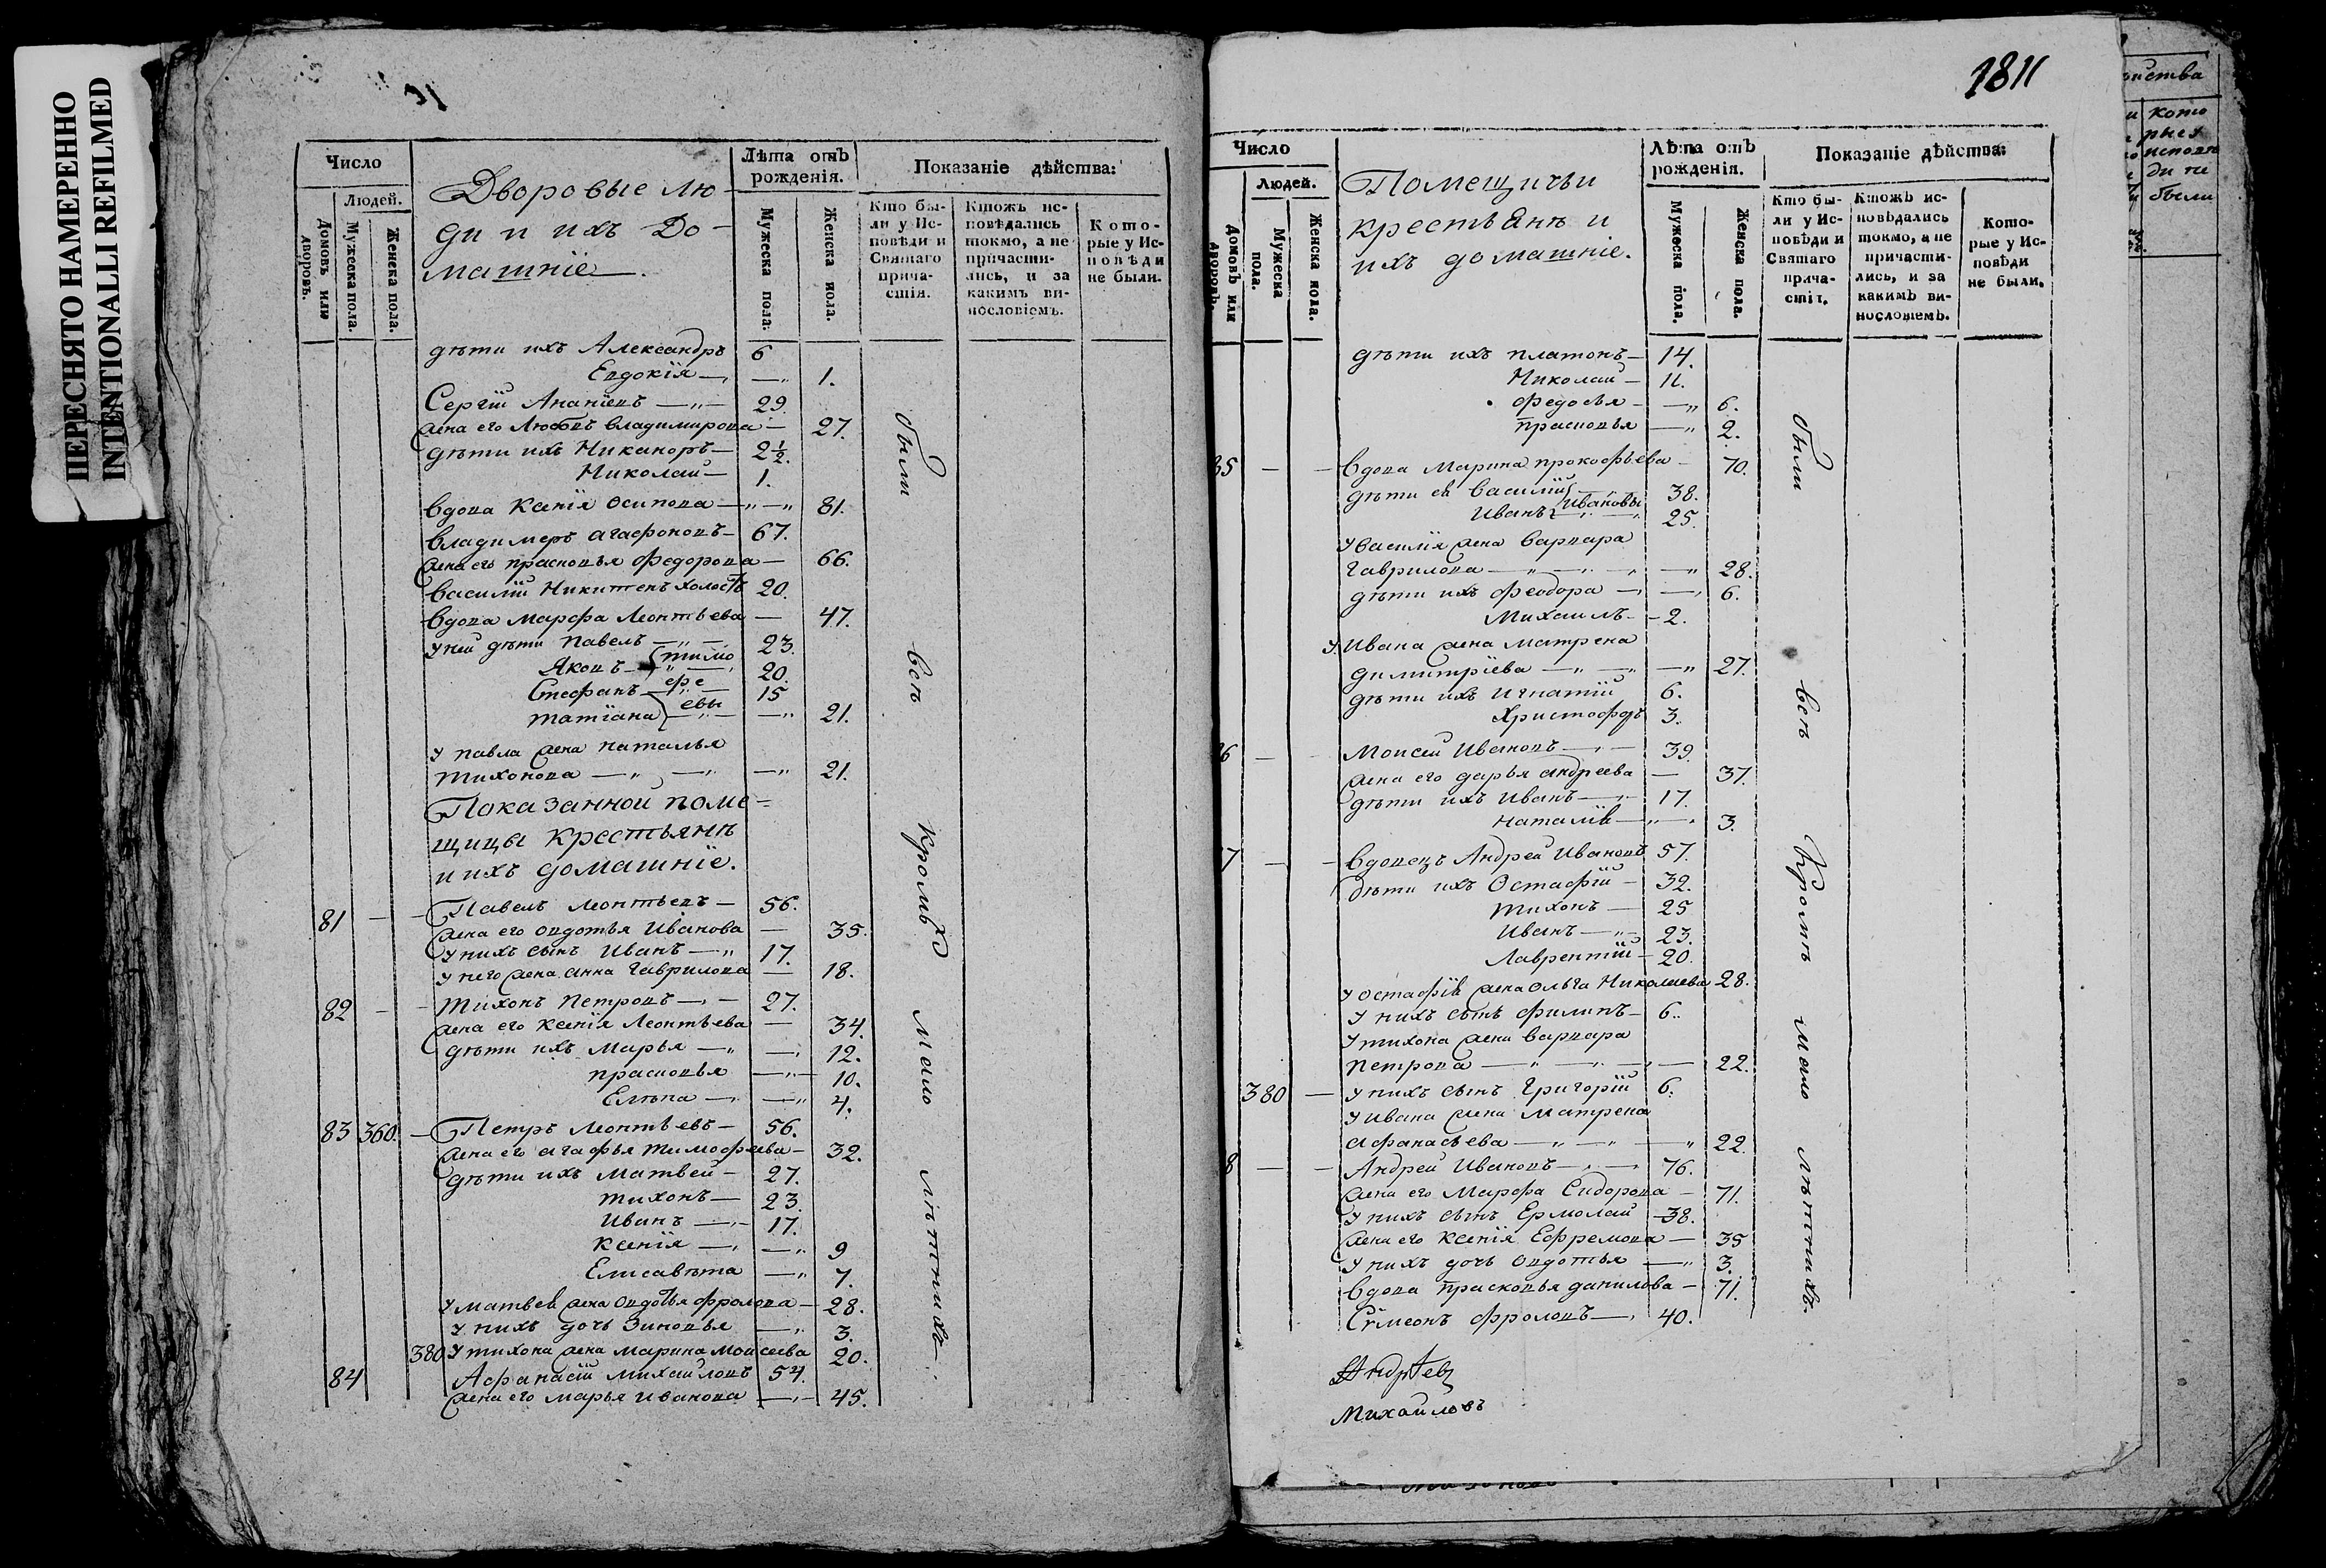 ПЕРЕСНЯТО НАМЕРЕННО
INTENTIONALLI REFILMED
Число
Людей.
Домовъ или дворовъ.
Мужеска пола.
Женска пола.
Дворовые лю-
ди и ихъ До-
машніе.
Лѣта отъ рожденія.
Мужеска пола.
Женска пола.
Показаніе дѣйства:
Кто бы-
ли у Ис-
повѣди и
Святаго
прича-
стія.
Ктожъ ис-
повѣдались
токмо, а не
причасти-
лись, и за
какимъ ви-
нословіемъ.
Кото-
рые у Ис-
повѣди
не были.
дѣти ихъ Александръ 6
Евдокія — 1.
Сергій Ананіевъ — 29.
жена его Любовь владимирова — 27.
дѣти ихъ Никаноръ — 2½.
Николай — 1.
вдова Ксенія Осипова — 81.
владимеръ агафоновъ — 67.
жена его прасковья федорова — 66.
василій Никитенъ холостъ 20.
вдова марфа Леонтьева — 47.
у ней дѣти павелъ — 23.
Яковъ — 20.
Стефанъ — 15
татіана — 21.
тимо
фе
евы
у павла жена наталья
тихонова — 21.
Показанной поме-
щицы крестьянѣ
и ихъ домашніе.
81 — Павелъ леонтьевъ — 56.
жена его овдотья Иванова — 35.
у нихъ сынъ Иванъ — 17.
у него жена анна Гаврилова — 18.
82 — Тихонъ Петровъ — 27.
жена его ксенія Леонтьева — 34.
дѣти ихъ Марья — 12.
прасковья — 10.
Елѣна — 4.
83 360. — Петръ леонтьевъ — 56.
жена его агафья тимофеева — 32.
дѣти ихъ матвей — 27.
тихонъ — 23.
Иванъ — 17.
Ксенія — 9
Елисавѣта — 7.
у матвея жена овдотья фролова — 28.
у нихъ дочь Зиновья — 3.
380 у тихона жена марина моисеева 20.
84 Афанасій михайловъ 54.
жена его марья иванова — 45.
были всѣ кромѣ мало лѣтнихъ
1811
Число
Людей.
Домовъ или дворовъ.
Мужеска пола.
Женска пола.
Помещичьи
крестьянѣ и
ихъ домашніе.
Лѣта отъ рожденія.
Мужеска пола.
Женска пола.
Показаніе дѣйства:
Кто бы-
ли у Ис-
повѣди и
Святаго
прича-
стія.
Ктожъ ис-
повѣдались
токмо, а не
причасти-
лись, и за
какимъ ви-
нословіемъ.
Кото-
рые у Ис-
повѣди
не были.
дѣти ихъ платонъ — 14.
Николай — 11.
федосья — 6.
прасковья — 2.
85 — вдова Марина прокофьева — 70.
дѣти ея василій 38.
Иванъ Ивановы 25.
у василія жена варвара
гаврилова — 28.
дѣти ихъ феодора — 6.
михаилъ — 2.
у Ивана жена матрена
димитріева — 27.
дѣти ихъ игнатій 6.
Христофоръ 3.
6 — моисей Ивановъ — 39.
жена его дарья андреева — 37.
дѣти ихъ Иванъ — 17.
наталія — 3.
7 — вдовецъ Андрей Ивановъ 57.
дѣти ихъ Остафій — 32.
тихонъ — 25
Иванъ — 23.
Лаврентій — 20.
у остафія жена ольга Николаева 28.
у нихъ сынъ филипъ — 6.
у тихона жена варвара
петрова — 22.
380 — у нихъ сынъ Григорій 6.
у ивана жена Матрена
афанасьева — 22.
8 — Андрей Ивановъ — 76.
жена его Марфа Сидорова — 71.
у нихъ сынъ Ермолай — 38.
жена его Ксенія Ефремова — 35
у нихъ дочь овдотья — 3.
вдова прасковья данилова — 71.
Сѵмеонъ фроловъ — 40.
были всѣ Кромѣ мало лѣтнихъ.
Андреевъ
Михайловъ